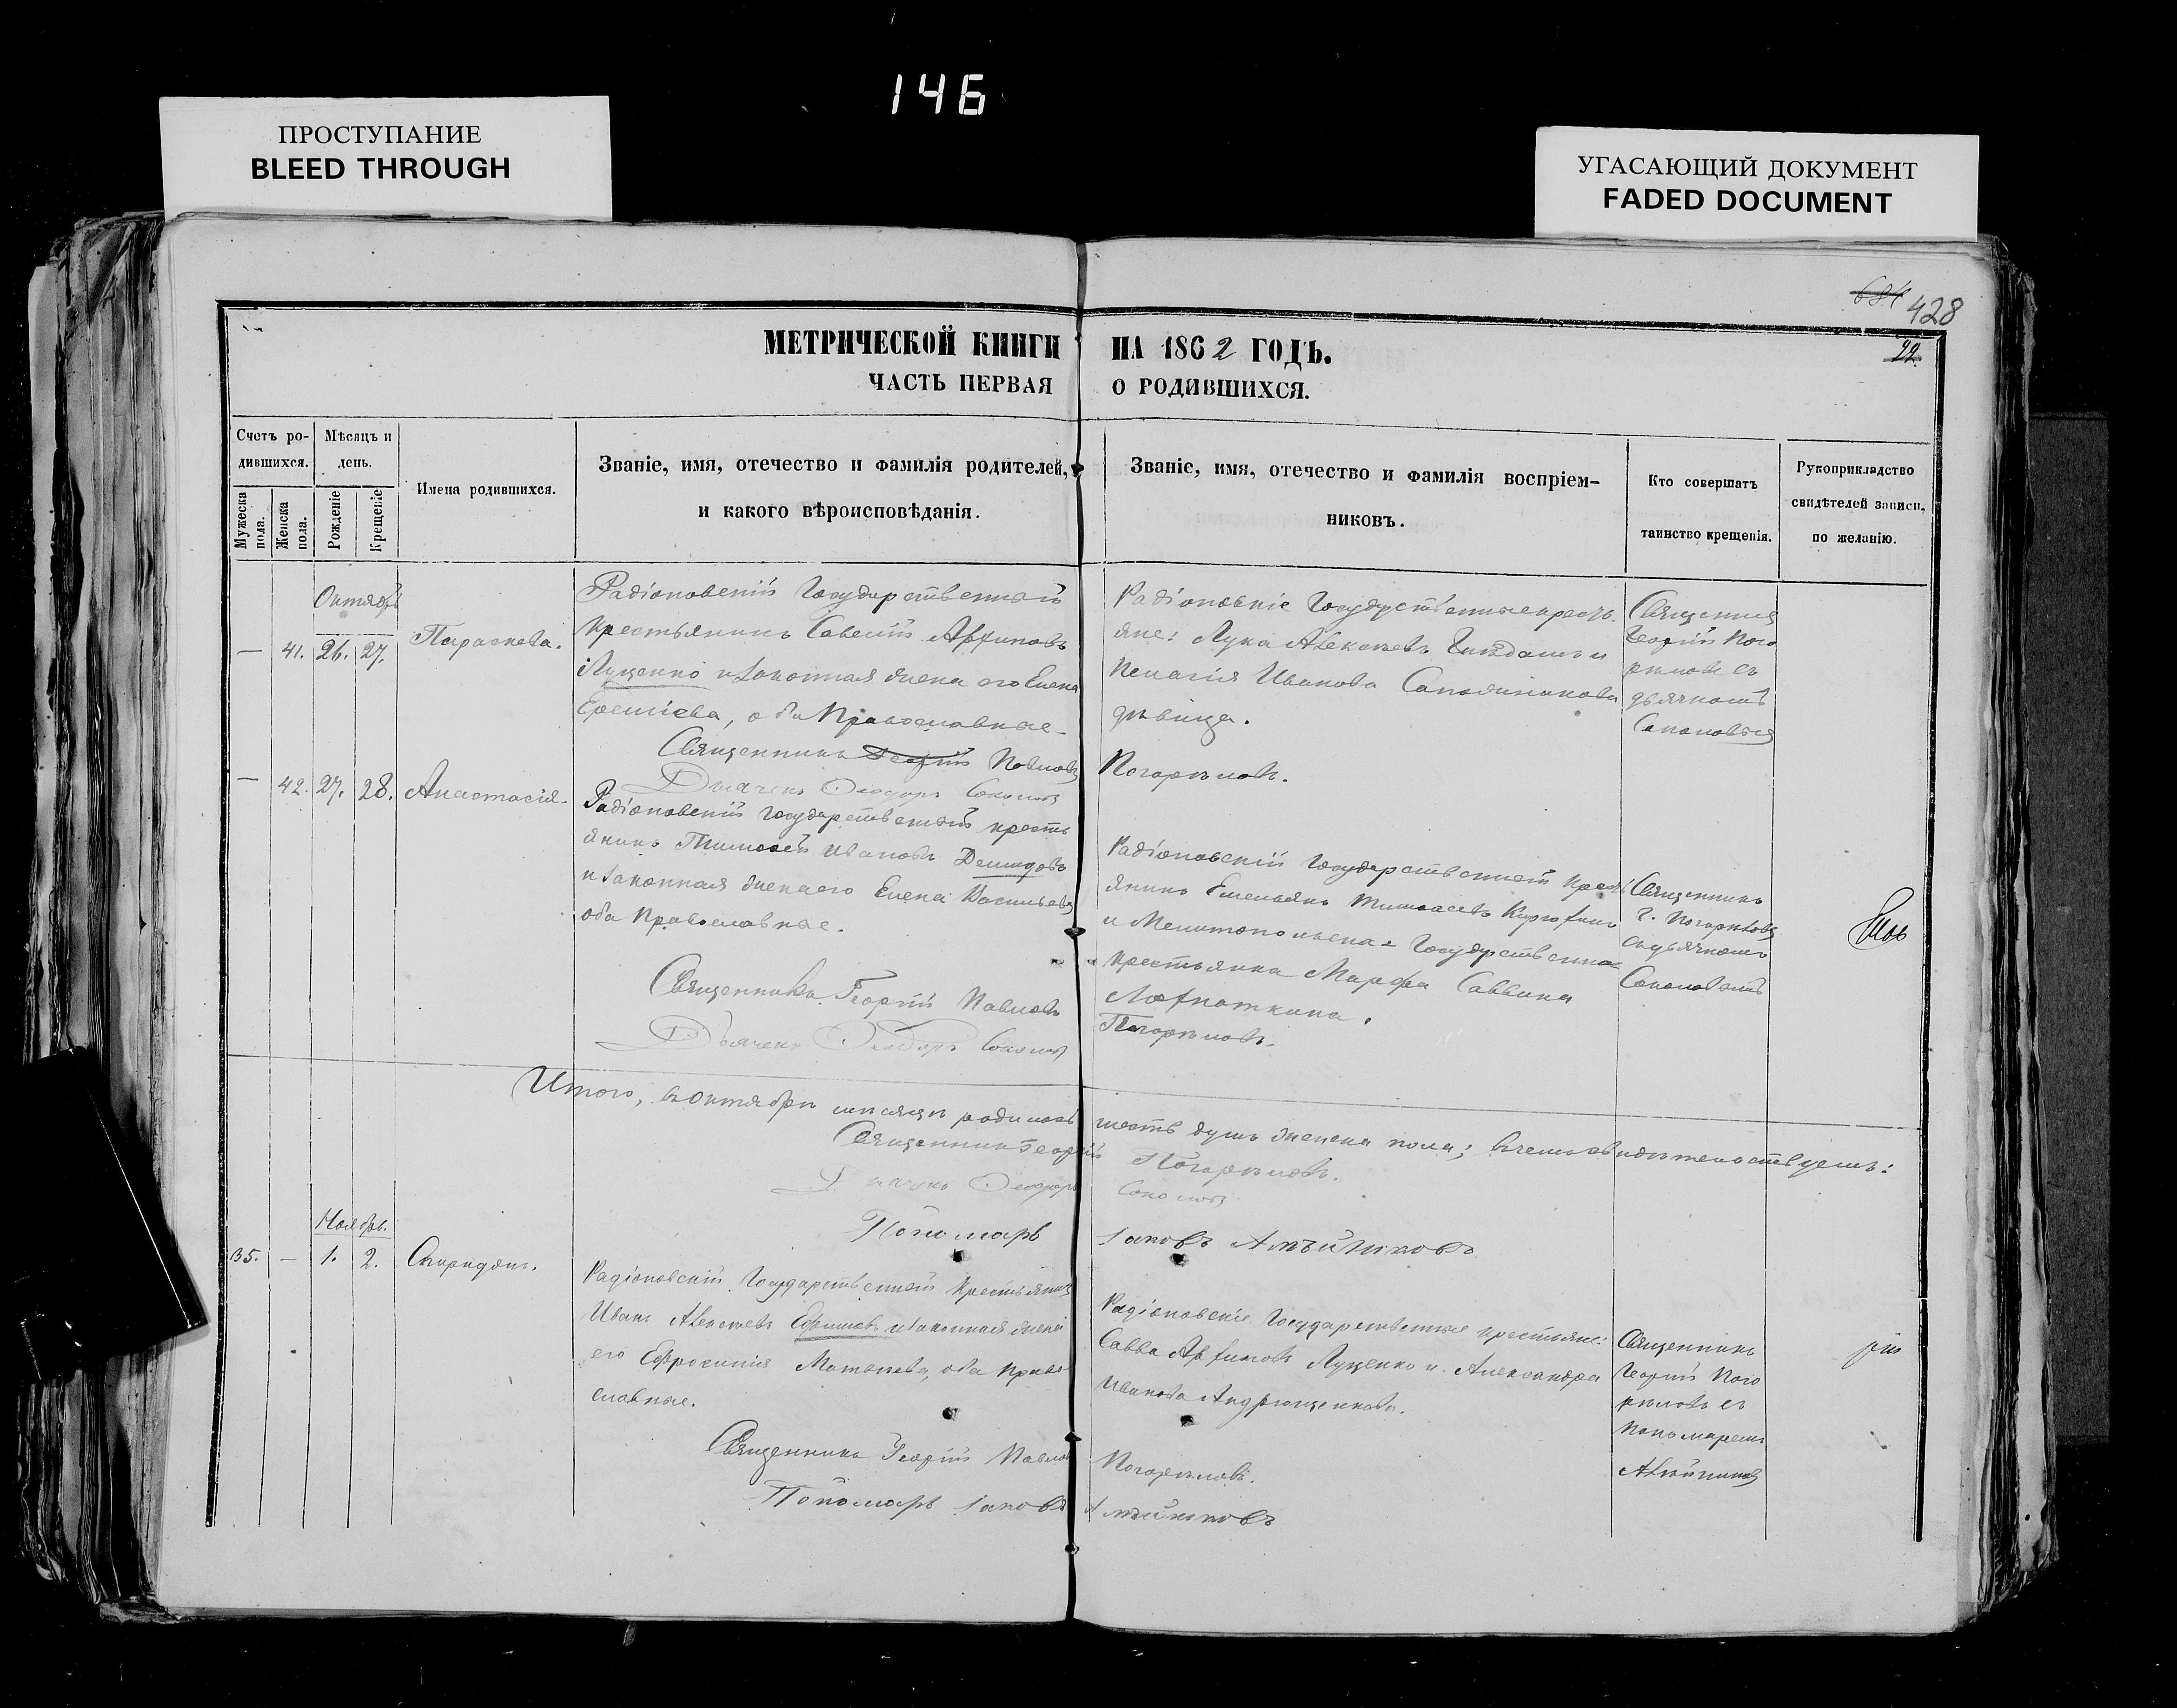 146
ПРОСТУПАНИЕ
BLEED THROUGH
УГАСАЮЩИЙ ДОКУМЕНТ
FADED DOCUMENT
684 428
22.
МЕТРИЧЕСКОЙ КНИГИ НА 1862 ГОДЪ.
ЧАСТЬ ПЕРВАЯ О РОДИВШИХСЯ.
Счетъ ро-
дившихся.
Мужеска пола.
Женска пола.
Мѣсяцъ и
день.
Рожденіе
Крещеніе
Имена родившихся.
Званіе, имя, отечество и фамилія родителей,
и какого вѣроисповѣданія.
Званіе, имя, отечество и фамилія воспріем-
никовъ.
Кто совершатъ
таинство крещенія.
Рукоприкладство
свидѣтелей записи,
по желанію.
Октябрь
— 41. 26. 27. Параскева.
Радіоновскій Государственный
крестьянинъ Савелій
Луценко и законная жена его Елена
оба Православные
Священникъ Георгій Павловъ
Дьячекъ Ѳеодоръ Соколовъ
Радіоновскіе Государственные крестъ
яне: Лука Алексѣевъ и
Пелагія Иванова
дѣвица.
Погорѣловъ.
Священник
Георгій Пого
рѣловъ съ
дьячкомъ
— 42. 27. 28. Анастасія
Радіоновскій Государственный кресть
янинъ Тимоѳей Ивановъ Демидовъ
и законная жена его Елена Васильева
оба Православные.
Священникъ Георгій Павловъ
Дьячекъ Ѳеодоръ Соколовъ
Радіоновскій Государственный кресть
янинъ Емельянъ
и Мелитопольская Государственная
крестьянка Марфа Саввина
Погорѣловъ.
Священникъ
Г. Погорѣловъ
съ дьячкомъ
Соколовымъ
Итого, въ Октябрѣ мѣсяцѣ родилось шесть душъ женска пола; въ чемъ и свидѣтельствуемъ:
Священникъ Георгій Погорѣловъ.
Дьячекъ Ѳеодоръ Соколовъ
Пономарь Іаковъ
Ноябрь.
35. — 1. 2. Спиридонъ.
Радіоновскій Государственный Крестьянинъ
Иванъ Алексѣевъ Ефимовъ и законная жена
его Ефросинія Матвѣева, оба Право
славные.
Священникъ Георгій Павловъ
Пономарь Іаковъ
Радіоновскіе Государственные крестьяне:
Савва Луценко и Александра
Иванова Андрющенкова.
Погорѣловъ.
Священникъ
Георгій Пого
рѣловъ съ
пономаремъ